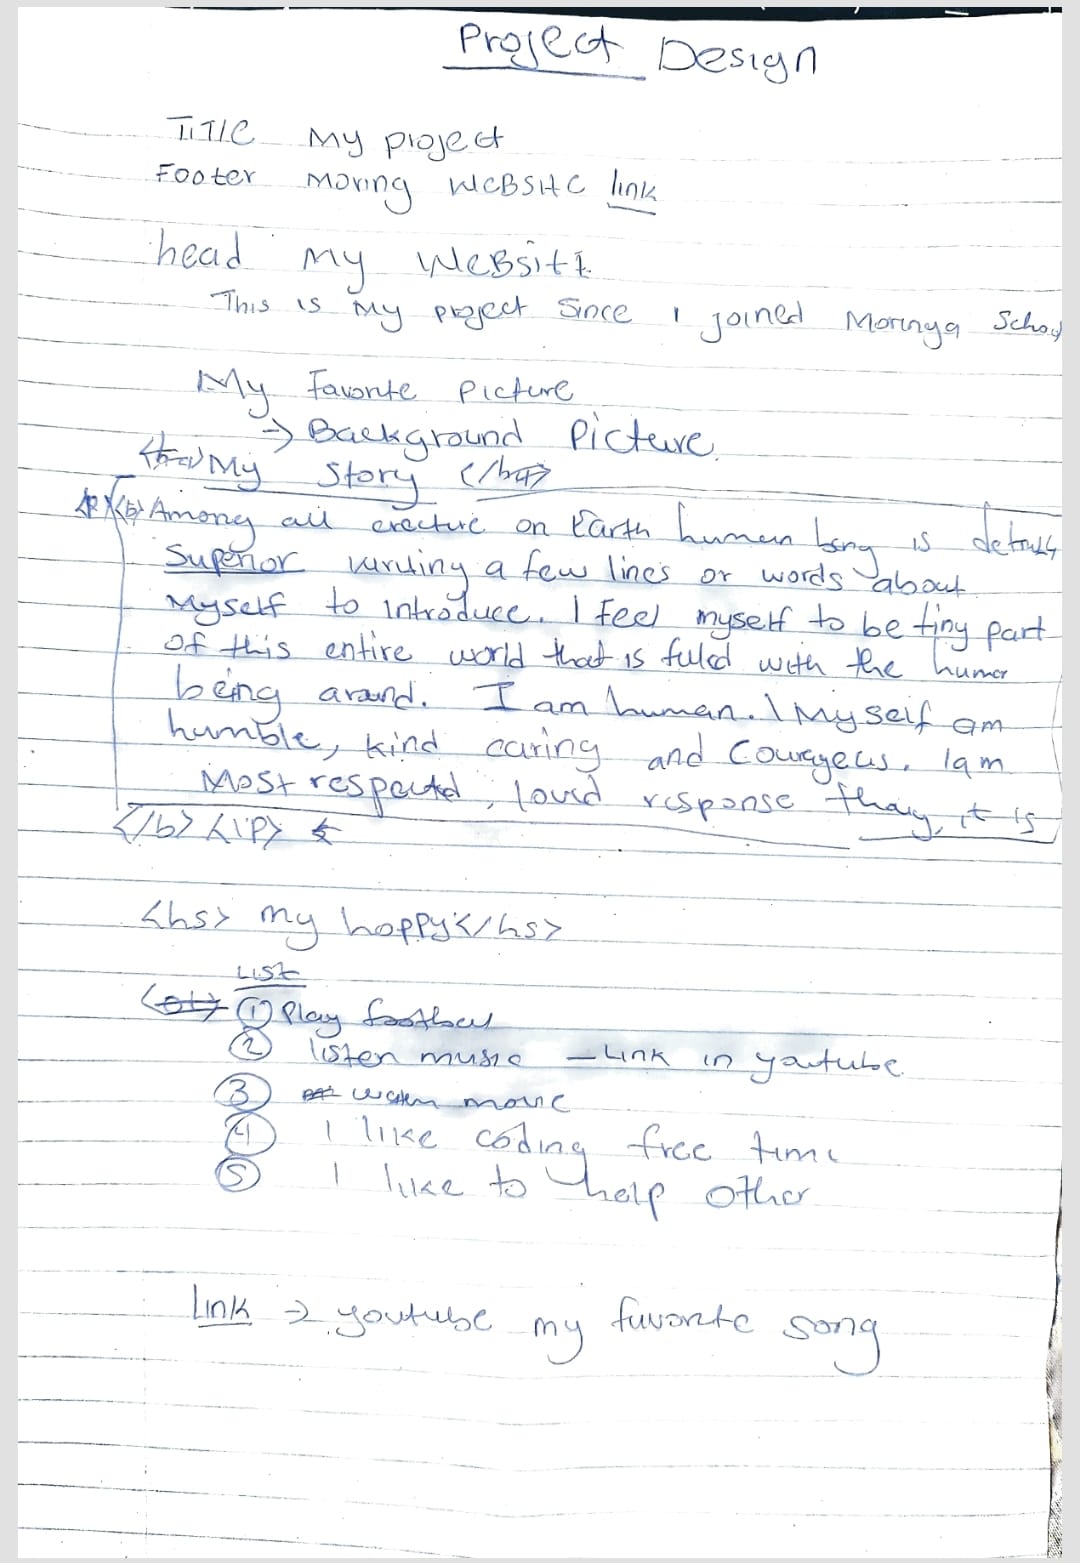 Project Design
TITLE My project
Footer Moring WEBSITE link
head My WEBSite
This is My project Since I joined Moringa School
My Favorite picture
→ Background Picture
My Story
<P> <b> Among all creature on Earth human being is
Superior writing a few lines or words about
Myself to introduce. I feel myself to be tiny part
of this entire world that is filled with the human
being around. I am human. I Myself am
humble, kind caring and Courageous. I am
Most respected, response it is
</b> </P>
<h5> my hoppy </h5>
List
① Play football
② listen music – Link in youtube
③ watch movie
④ I like coding free time
⑤ I like to help other
Link → youtube my favorite song